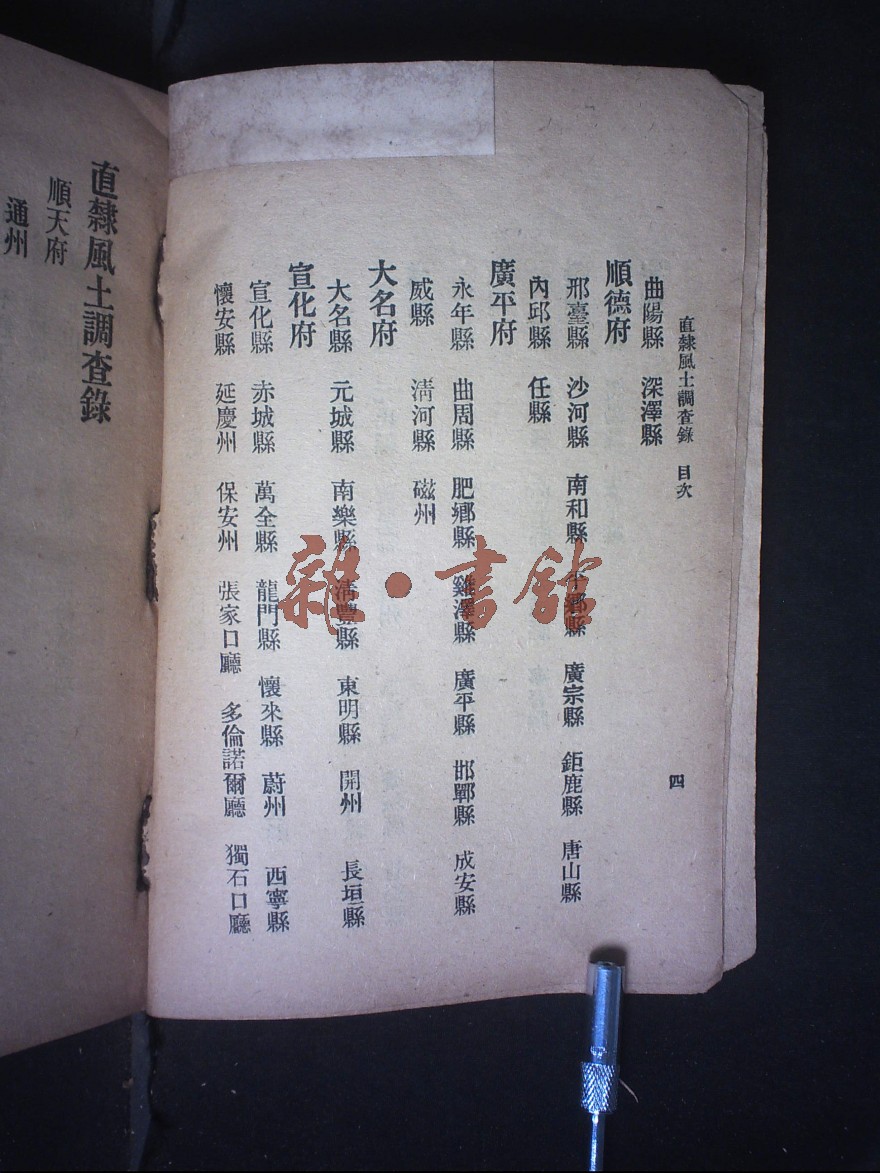 直隸風土調查錄 目次 四
曲陽縣 深澤縣
順德府
邢臺縣 沙河縣 南和縣 平鄉縣 廣宗縣 鉅鹿縣 唐山縣
內邱縣 任縣
廣平府
永年縣 曲周縣 肥鄉縣 雞澤縣 廣平縣 邯鄲縣 成安縣
威縣 淸河縣 磁州
大名府
大名縣 元城縣 南樂縣 淸豐縣 東明縣 開州 長垣縣
宣化府
宣化縣 赤城縣 萬全縣 龍門縣 懷來縣 蔚州 西寧縣
懷安縣 延慶州 保安州 張家口廳 多倫諾爾廳 獨石口廳
直隸風土調查錄
順天府
通州
雜·書館